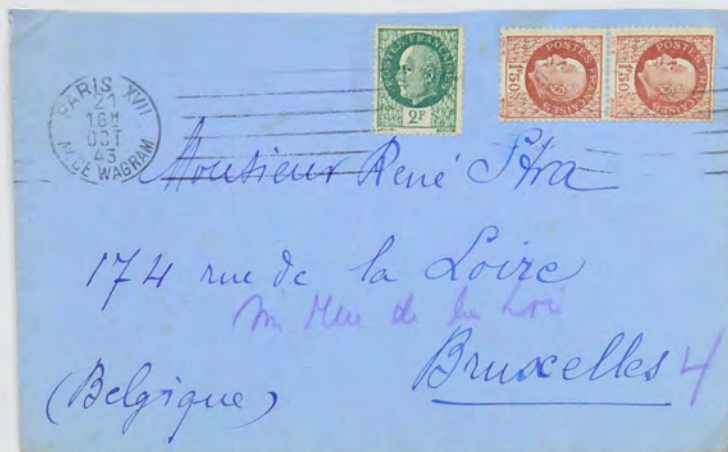 PARIS XVII
21
18H
OCT
43
AV. DE WAGRAM
POSTES FRANÇAISES
2F
POSTES FRANÇAISES
1F50
POSTES FRANÇAISES
1F50
Monsieur René Stra
174 rue de la Loire
Rue de la Loi
Bruxelles 4
(Belgique)